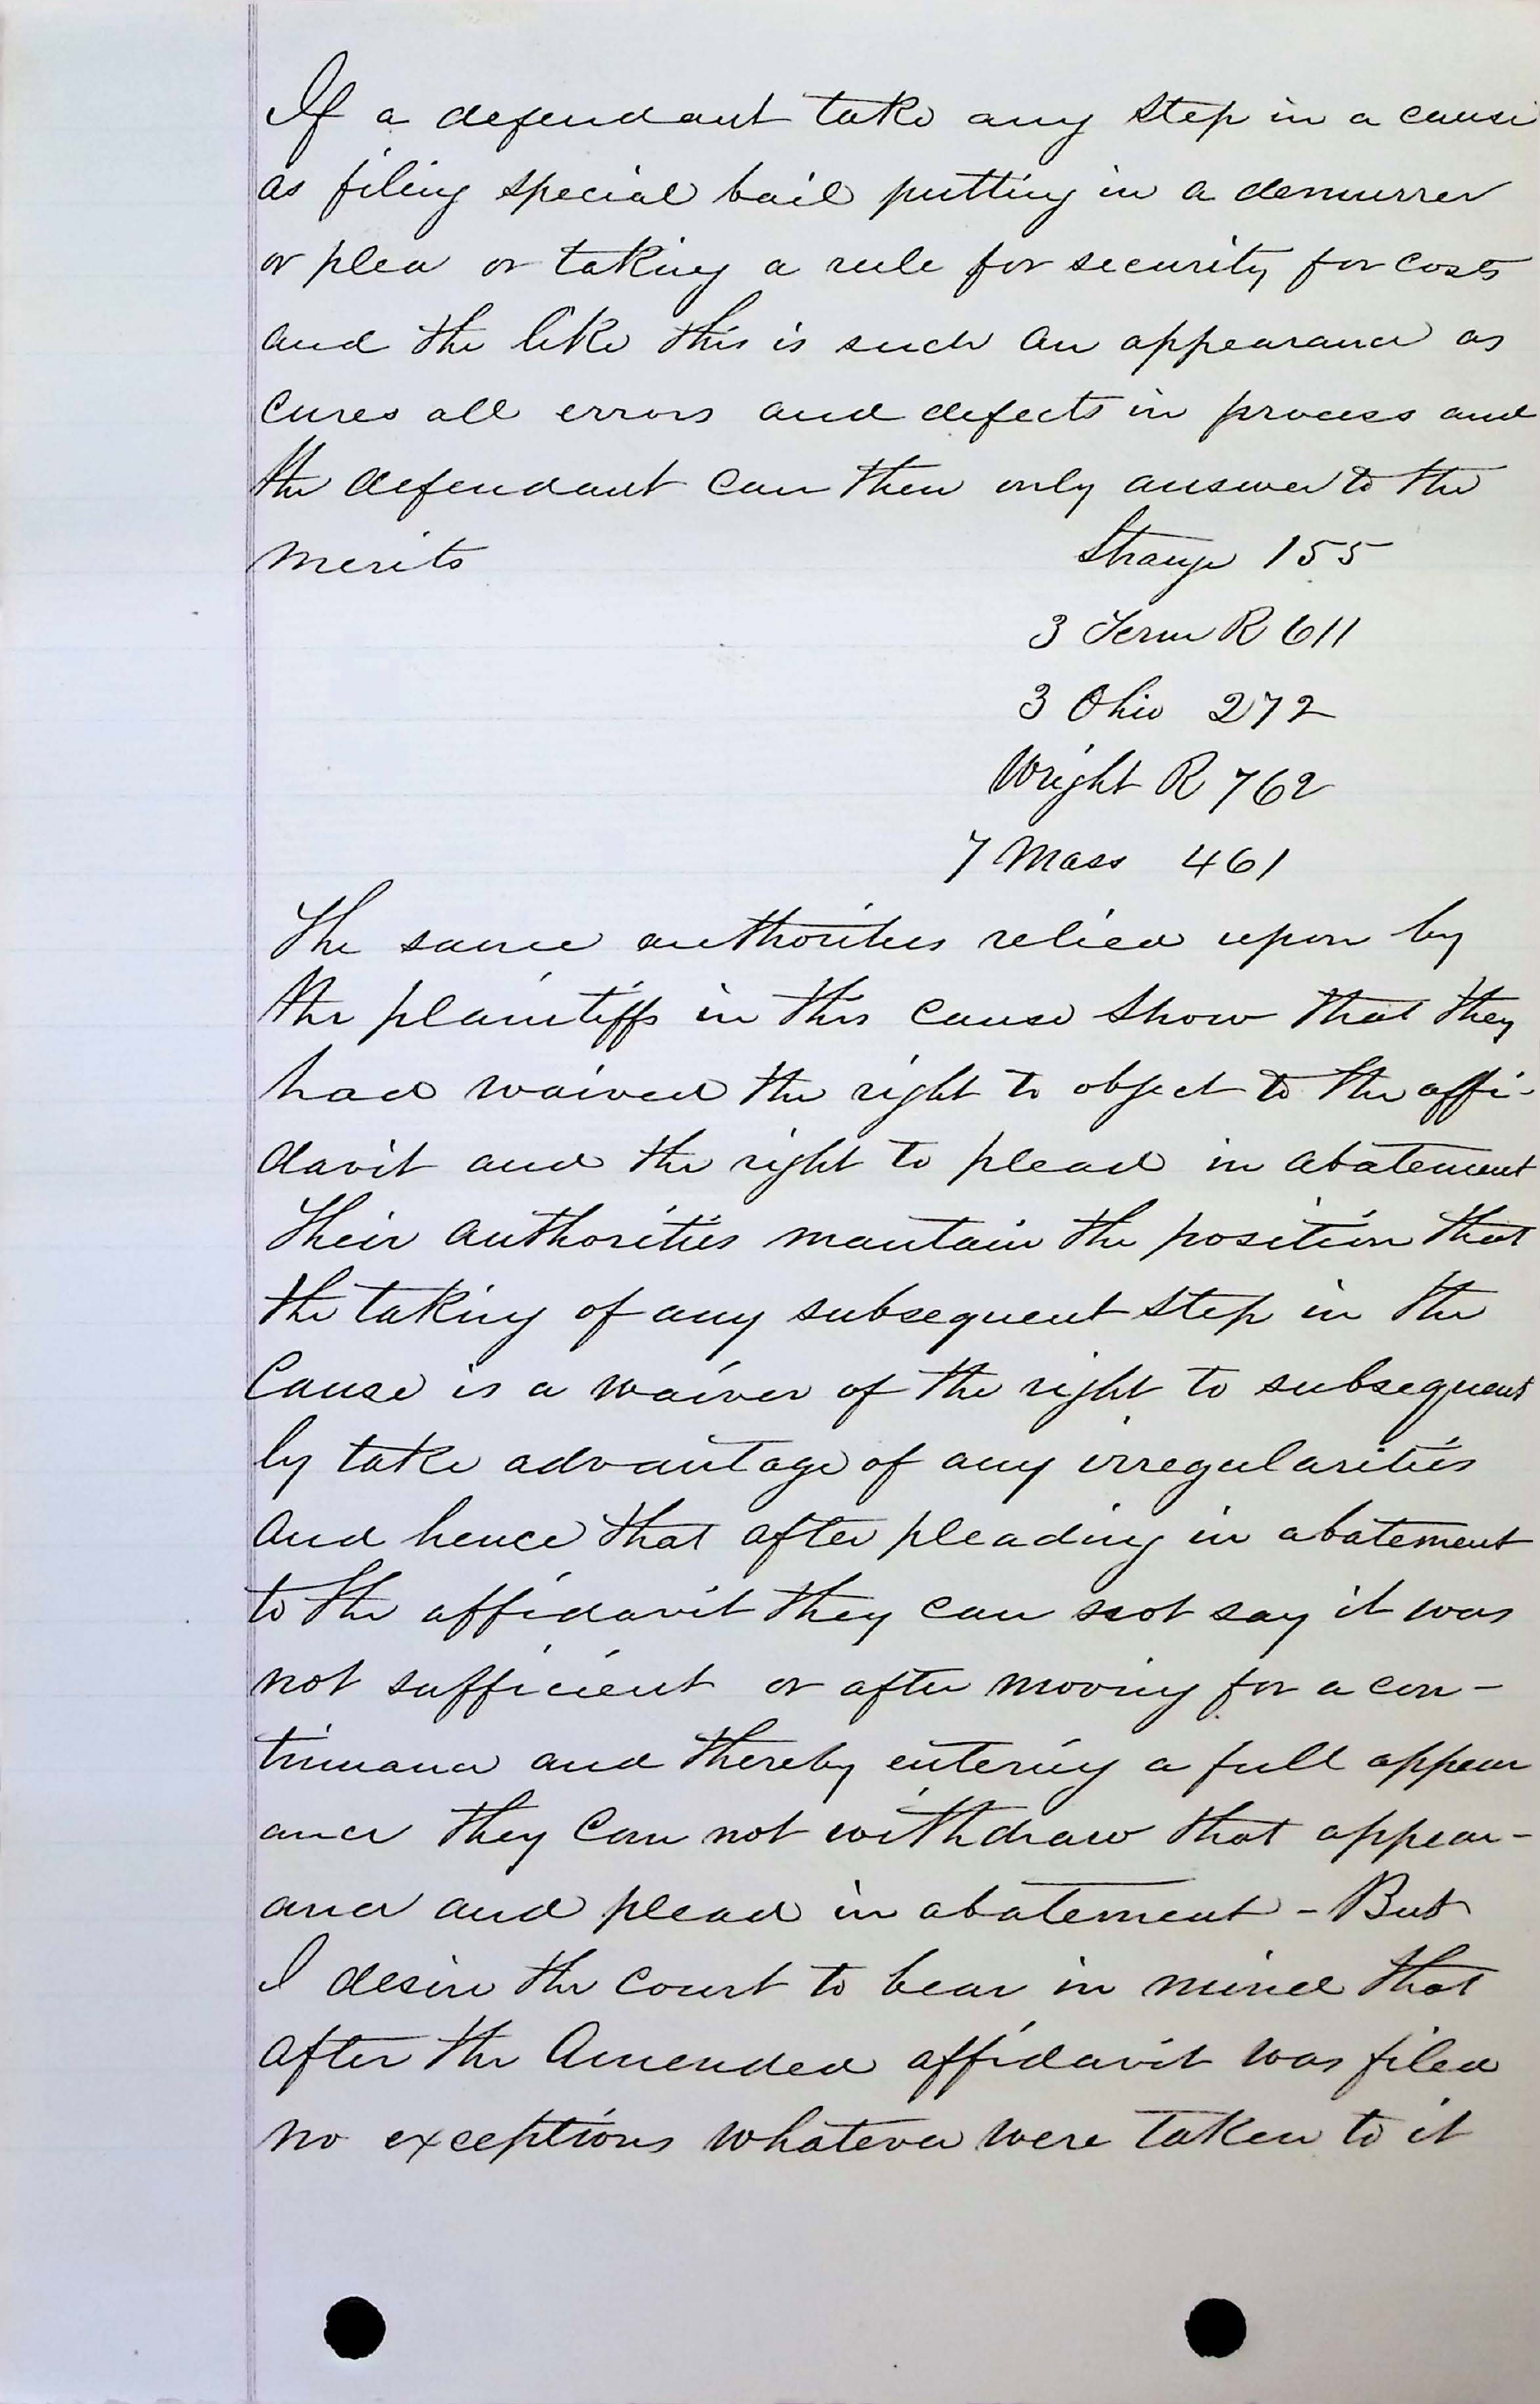 If a defendant take any step in a cause
as filing special bail putting in a demurrer
or plea or taking a rule for security for costs
and the like this is such an appearance as
cures all errors and defects in process and
the defendant can then only answer to the
merits Strange 155
3 Term R 611
3 Ohio 272
Wright R 762
7 Mass 461
The same authorities relied upon by
the plaintiffs in this cause show that they
had waived the right to object to the affi-
davit and the right to plead in abatement
Their authorities mantain the position that
the taking of any subsequent step in the
Cause is a waiver of the right to subsequent
ly take advantage of any irregularities
and hence that after pleading in abatement
to the affidavit they can not say it was
not sufficient or after moving for a con-
tinuance and thereby entering a full appear
ance they can not withdraw that appear-
ance and plead in abatement - But
I desire the court to bear in mind that
after the Amended affidavit was filed
no exceptions whatever were taken to it